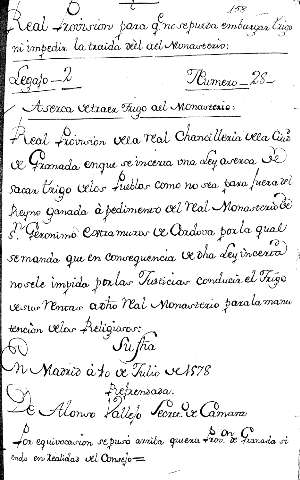 158
Real Provision para q.e no se pueda embargar trigo
ni impedir la traida del al Monasterio:
Legajo - 2 Numero - 28 -
Aserca de traer Trigo al Monasterio:
Real Provision de la Real Chancilleria de la Ciu.d
de Granada en que se incerta una Ley aserca de
sacar trigo de los Pueblos como no sea para fuera del
Reyno ganada à pedimento del Real Monasterio de
S.n Geronimo extramuros de Cordova por la qual
se manda que en consequencia de dha Ley incerta
no se le impida por las Justicias conducir el Trigo
de sus Rentas a dho Real Monasterio para la manu
tencion de los Religiosos:
Su fha
En Madrid à 10 de Julio de 1578
Refrendada
De Alonso Vallejo Secre.o de Camara
Por equivocacion se puso arriba que era Prov.on de Granada si
endo en realidad del Consejo =